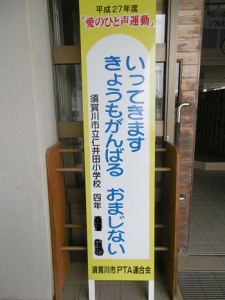 平成27年度
「愛のひと声運動」
いってきます
きょうもがんばる おまじない
須賀川市立仁井田小学校 四年
須賀川市PTA連合会